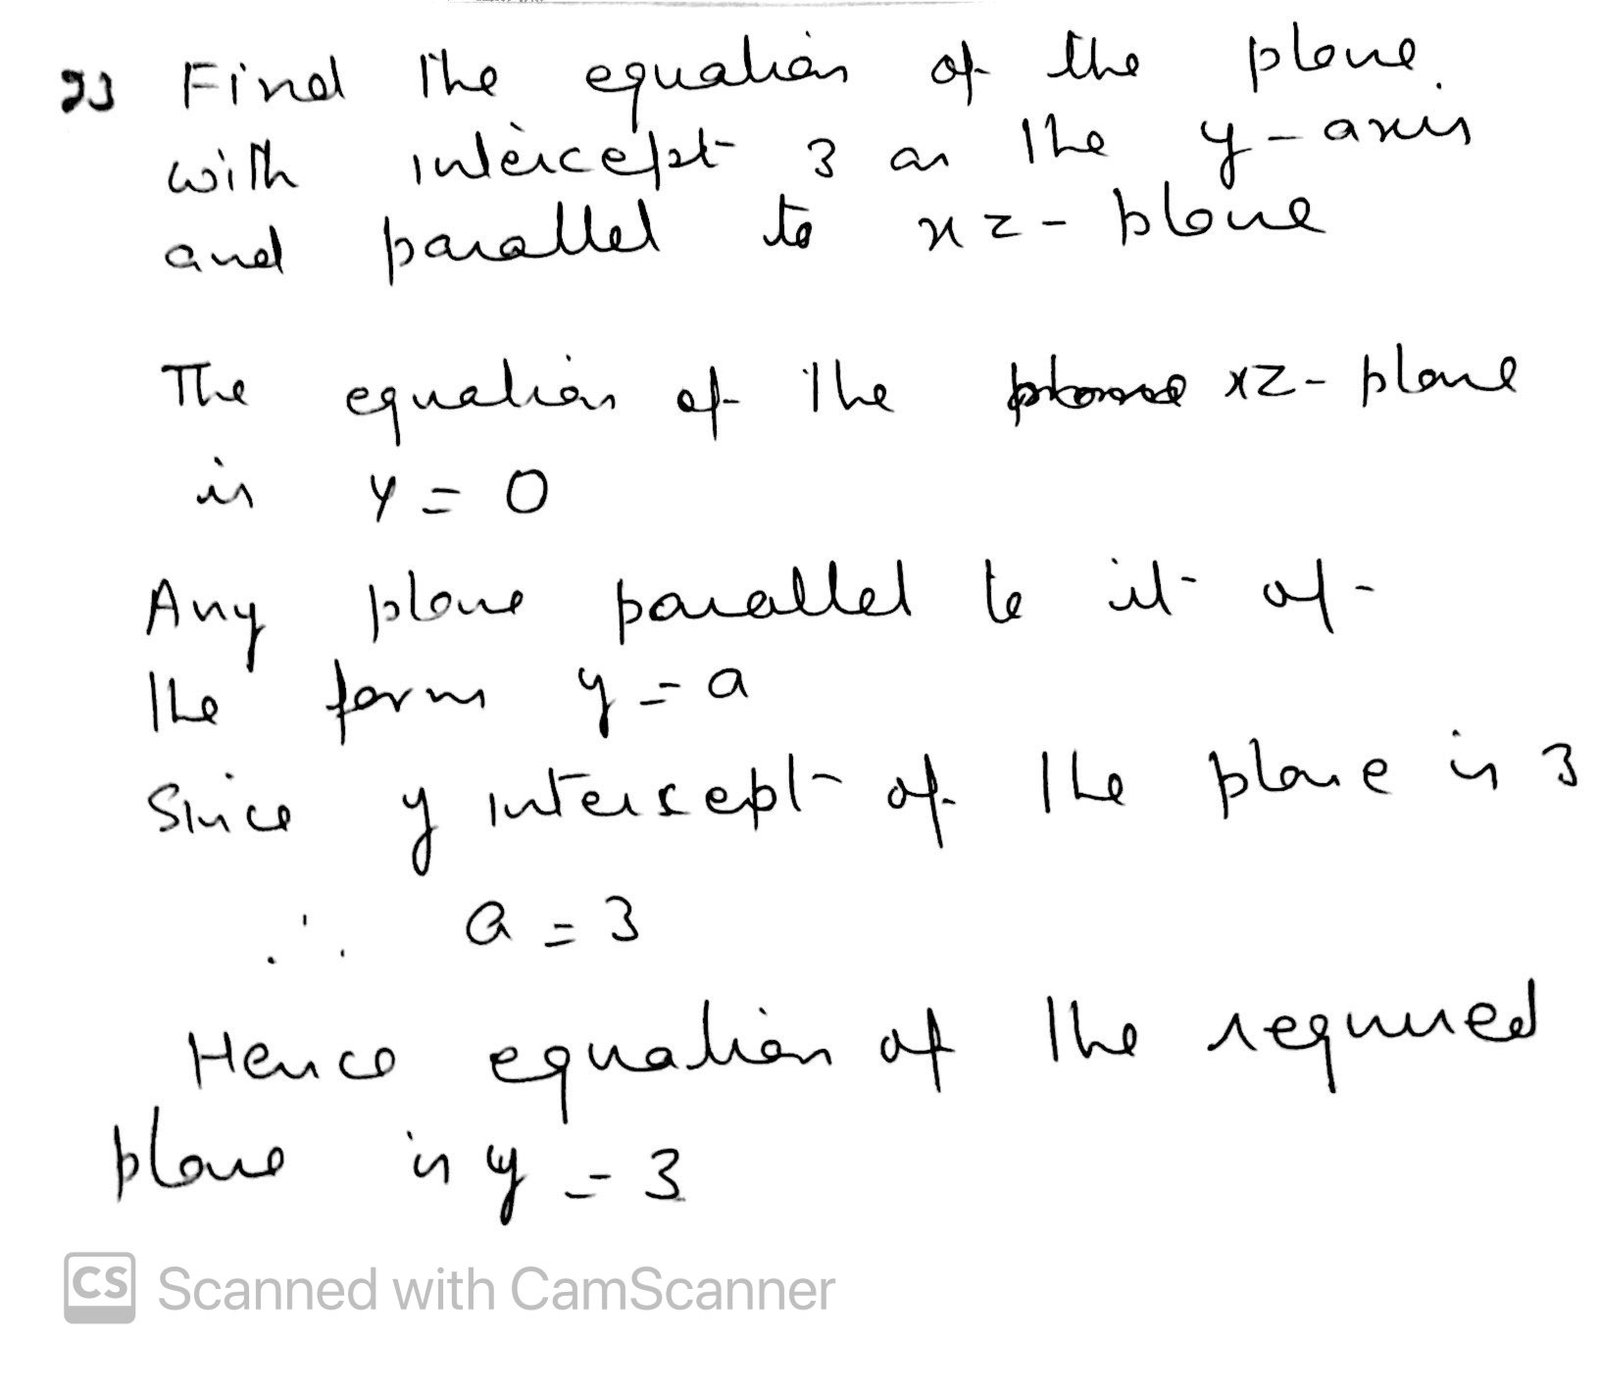 23 Find the equation of the plane.
with intercept 3 on the y-axis
and parallel to xz-plane
The equation of the xz-plane
is y = 0
Any plane parallel to it of
the form y = a
Since y intercept of the plane is 3
∴ a = 3
Hence equation of the required
plane is y = 3
CS Scanned with CamScanner